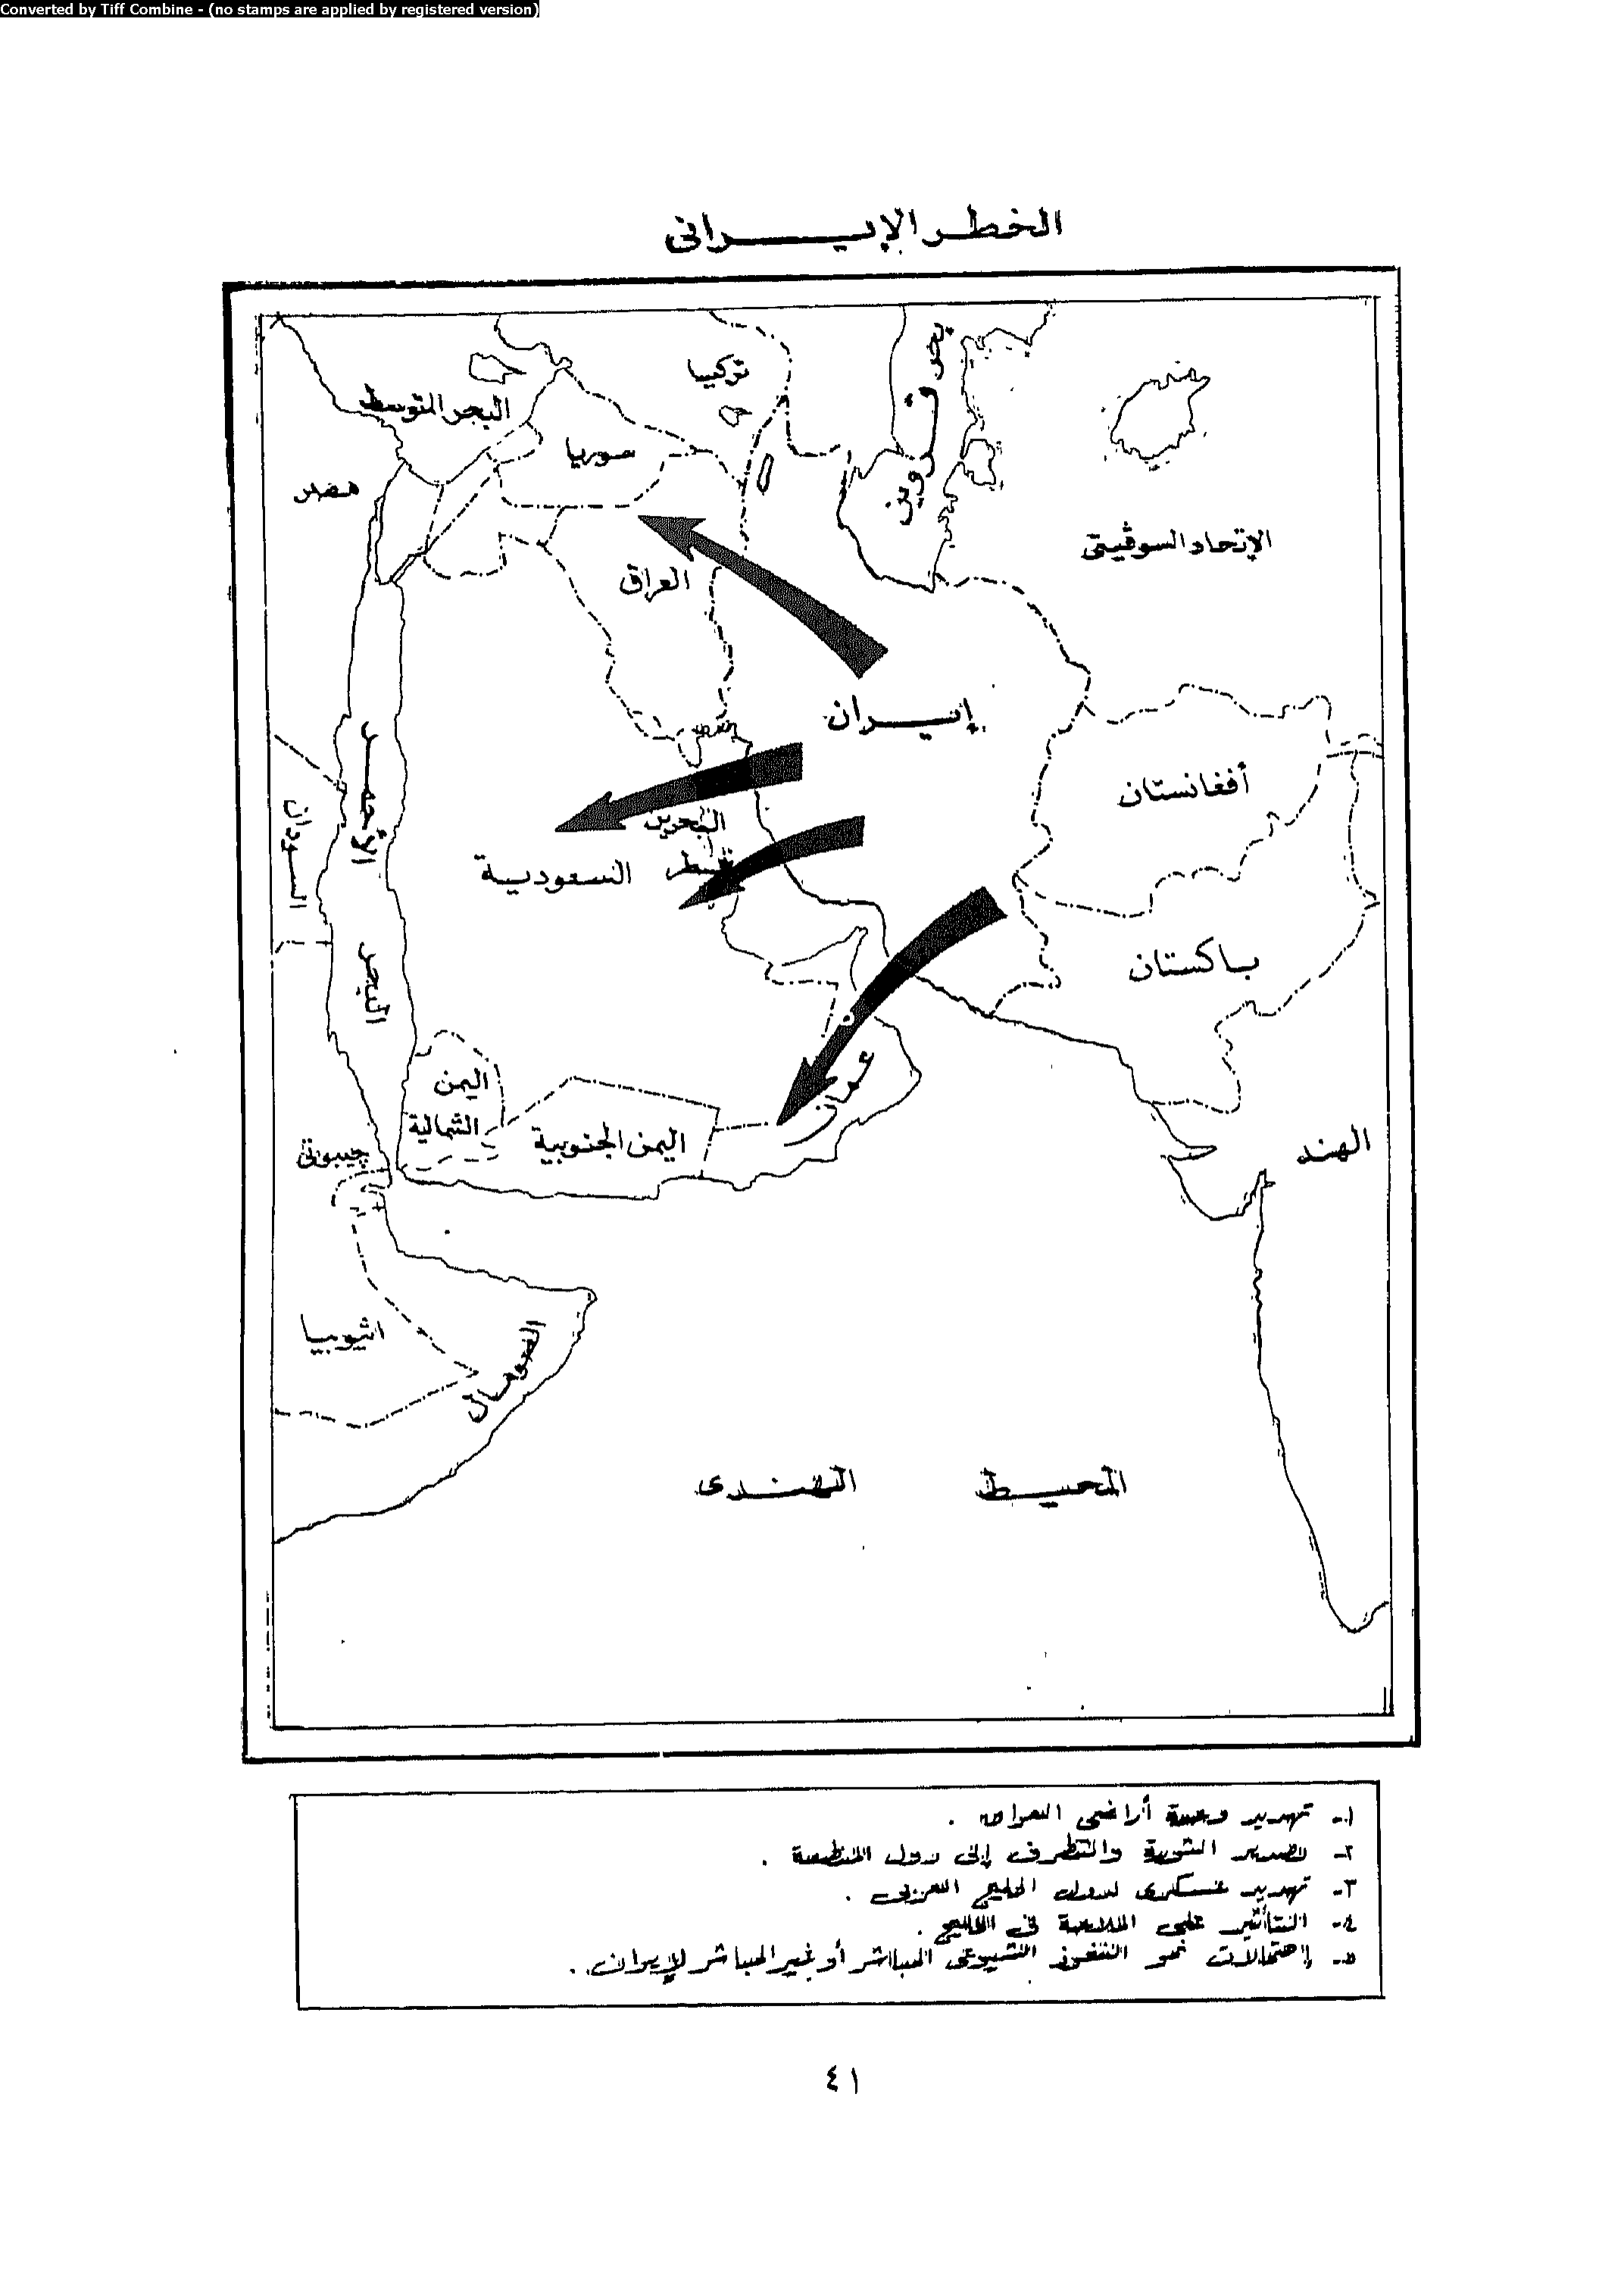 Converted by Tiff Combine - (no stamps are applied by registered version)
الخطر الإيراني
بحر قزوين
تركيا
البحر المتوسط
سوريا
مصر
الإتحاد السوڤيتى
العراق
إيران
أفغانستان
البحرين
قطر
السعودية
السودان
البحر الأحمر
باكستان
عمان
اليمن
الشمالية
اليمن الجنوبية
چيبوتى
الهند
اثيوبيا
الصومال
المحيط الهندى
١- تهديد وحدة أراضى العراق .
٢- تصدير الثورة والتطرف إلى دول المنطقة .
٣- تهديد عسكرى لدول الخليج العربى .
٤- التأثير على الملاحة فى الخليج .
٥- إحتمالات نمو النفوذ الشيوعى المباشر أو غير المباشر لإيران .
٤١